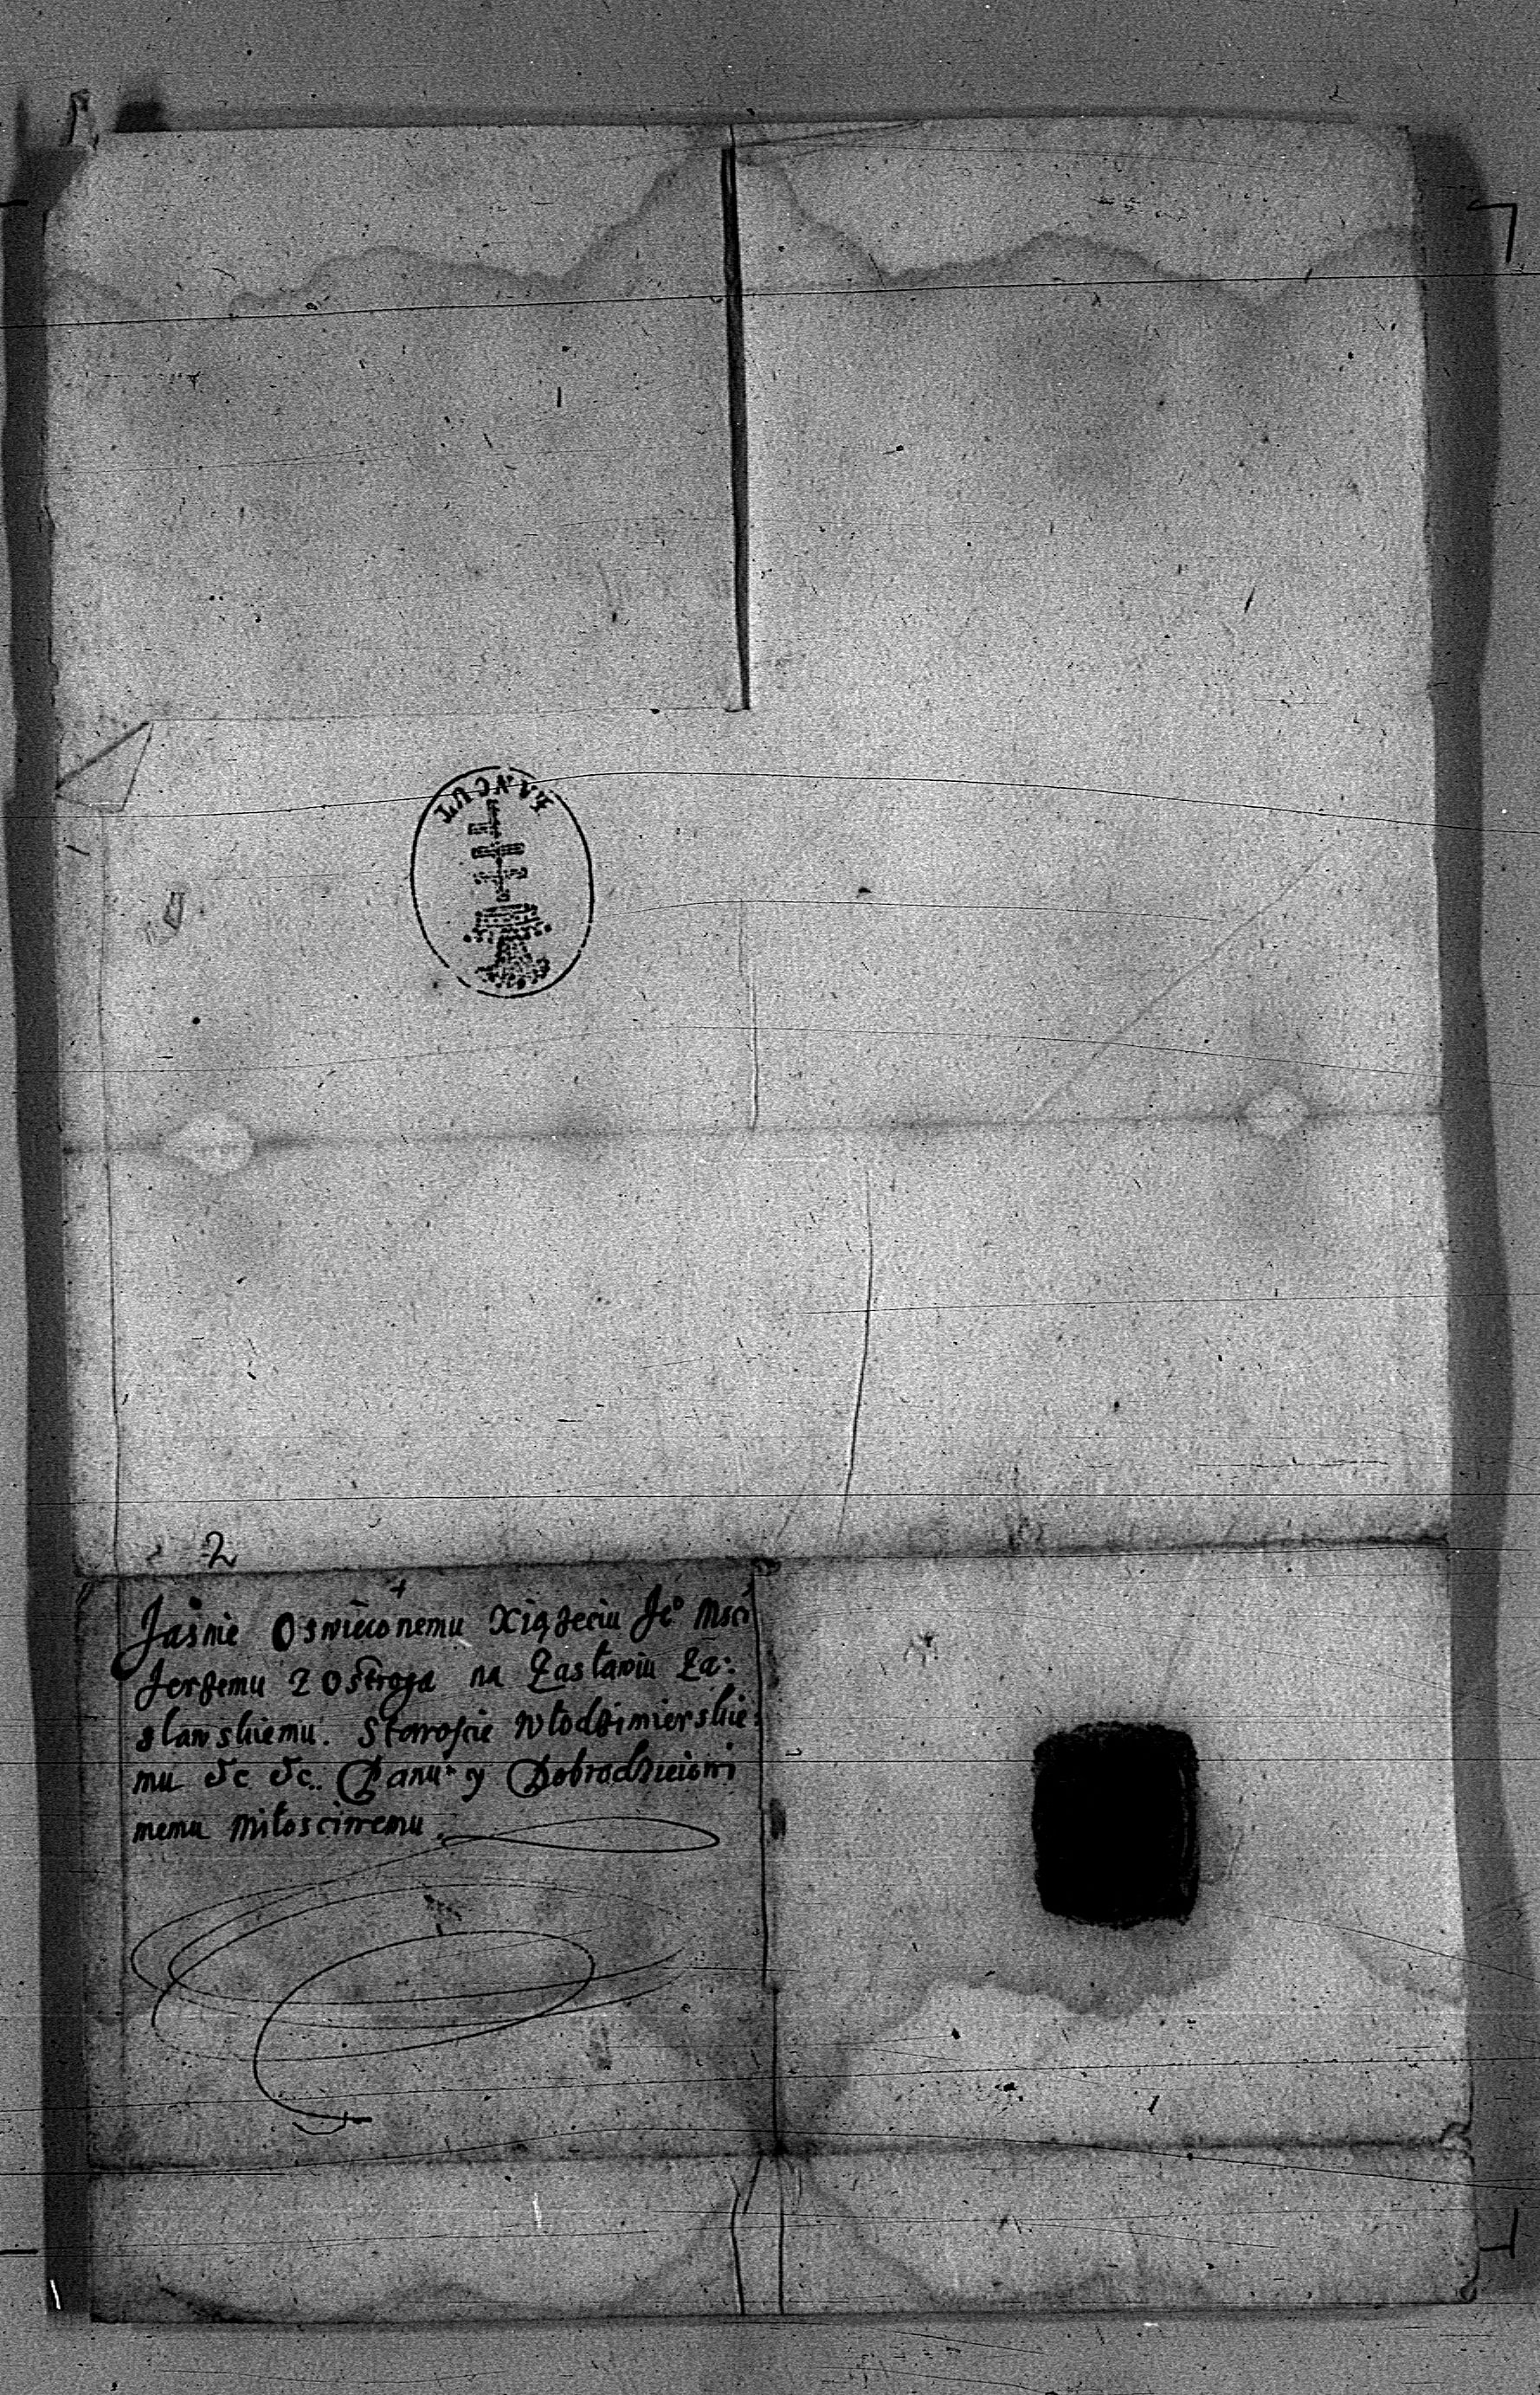 ŁANCUT
2
Jaśnie Oswieconemu Xiążeciu Je° Msci
Jerzemu z Ostroga na Zasławiu Za:
sławskiemu. Staroscie Włodzimierskie:
mu &c &c. Panu y Dobrodzieiowi
memu Miłosciwemu.